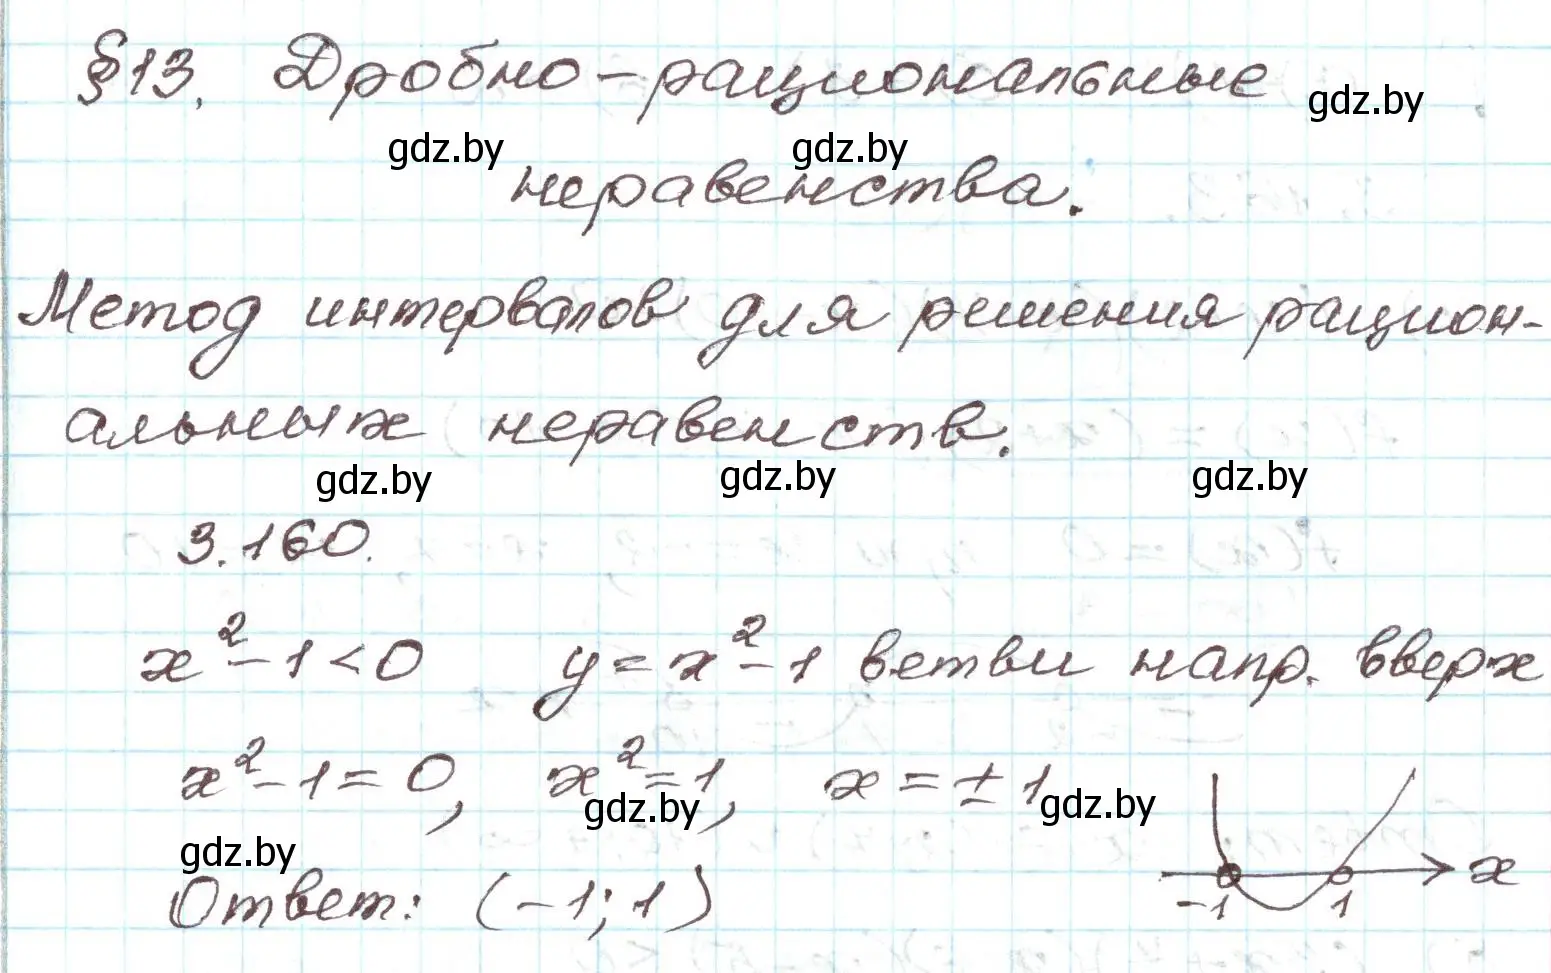 §13. Дробно-рациональные
gdz.by
gdz.by gdz.by
неравенства.
Метод интервалов для решения рацион-
альных неравенств.
gdz.by gdz.by gdz.by
3.160.
x²-1<0 y=x²-1 ветви напр. вверх
x²-1=0, x²=1, x=±1
gdz.by gdz.by
gdz.by
x
Ответ: (-1; 1)
-1 1